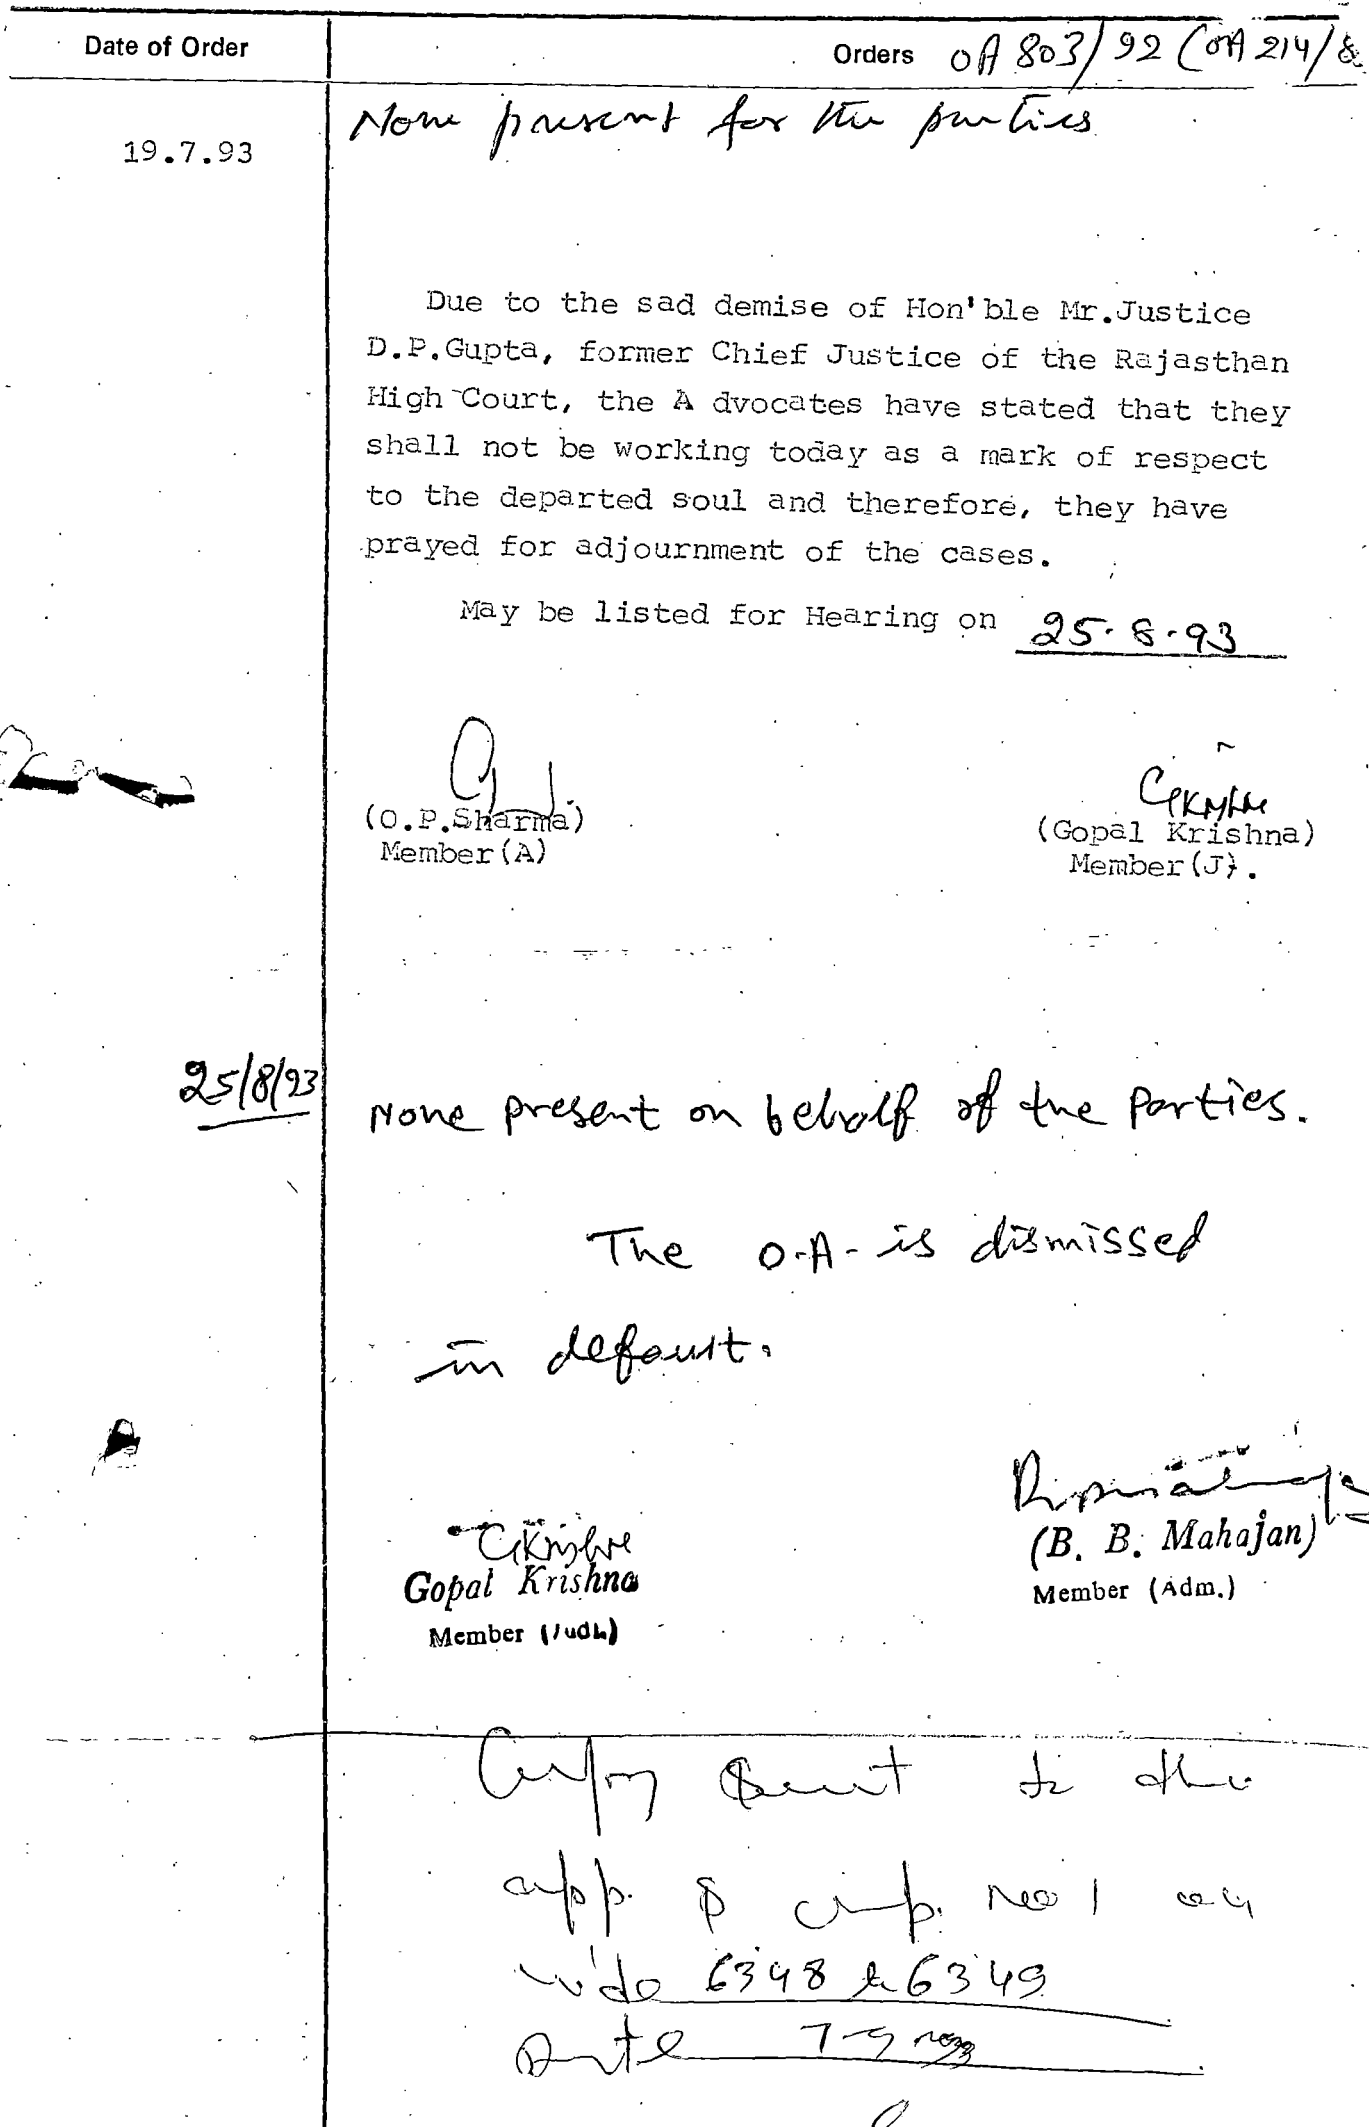 Date of Order
Orders OA 803/92 (OA 214/8
None present for the parties
19.7.93
Due to the sad demise of Hon'ble Mr.Justice
D.P.Gupta, former Chief Justice of the Rajasthan
High Court, the A dvocates have stated that they
shall not be working today as a mark of respect
to the departed soul and therefore, they have
prayed for adjournment of the cases.
May be listed for Hearing on 25.8.93
(O.P.Sharma)
Member(A)
GKrishna
(Gopal Krishna)
Member(J).
25/8/93
None present on behalf of the parties.
The O.A. is dismissed
in default.
GKrishna
Gopal Krishna
Member (Judl)
(B. B. Mahajan)
Member (Adm.)
Copy sent to the
app. & No 1
vide 6348 & 6349
Date 7-9